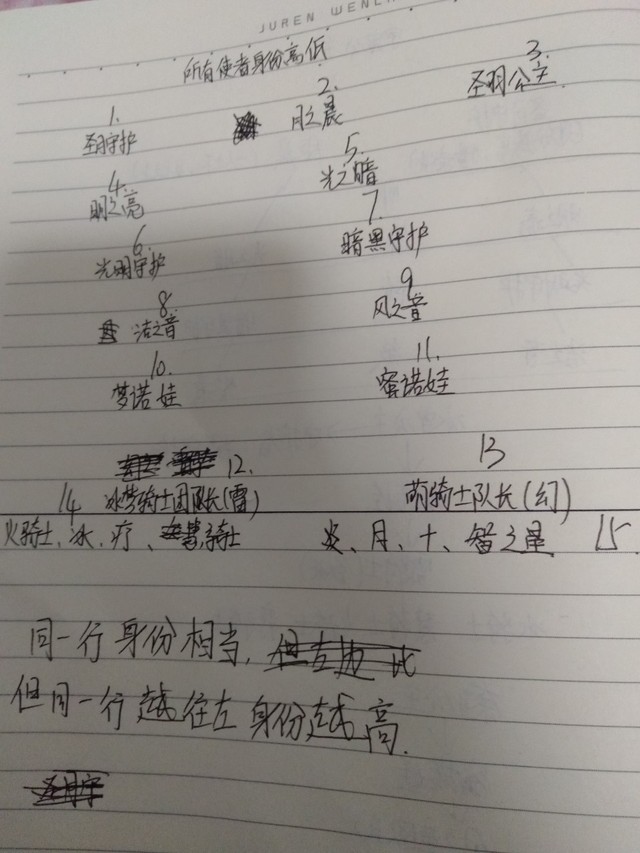 JUREN WENL
所有使者身份高低
1. 2. 3.
圣月守护 月之晨 圣羽公主
4. 5.
明之亮 光之暗
6. 7.
光明守护 暗黑守护
8 9
洁之音 风之音
10. 11.
梦诺娃 蜜诺娃
12. 13
14 冰梦骑士团队长(雷) 萌骑士队长(幻)
火骑士、冰、疗、骑士 炎、月、十、智之星 15.
同一行身份相当,
但同一行越往左身份越高.